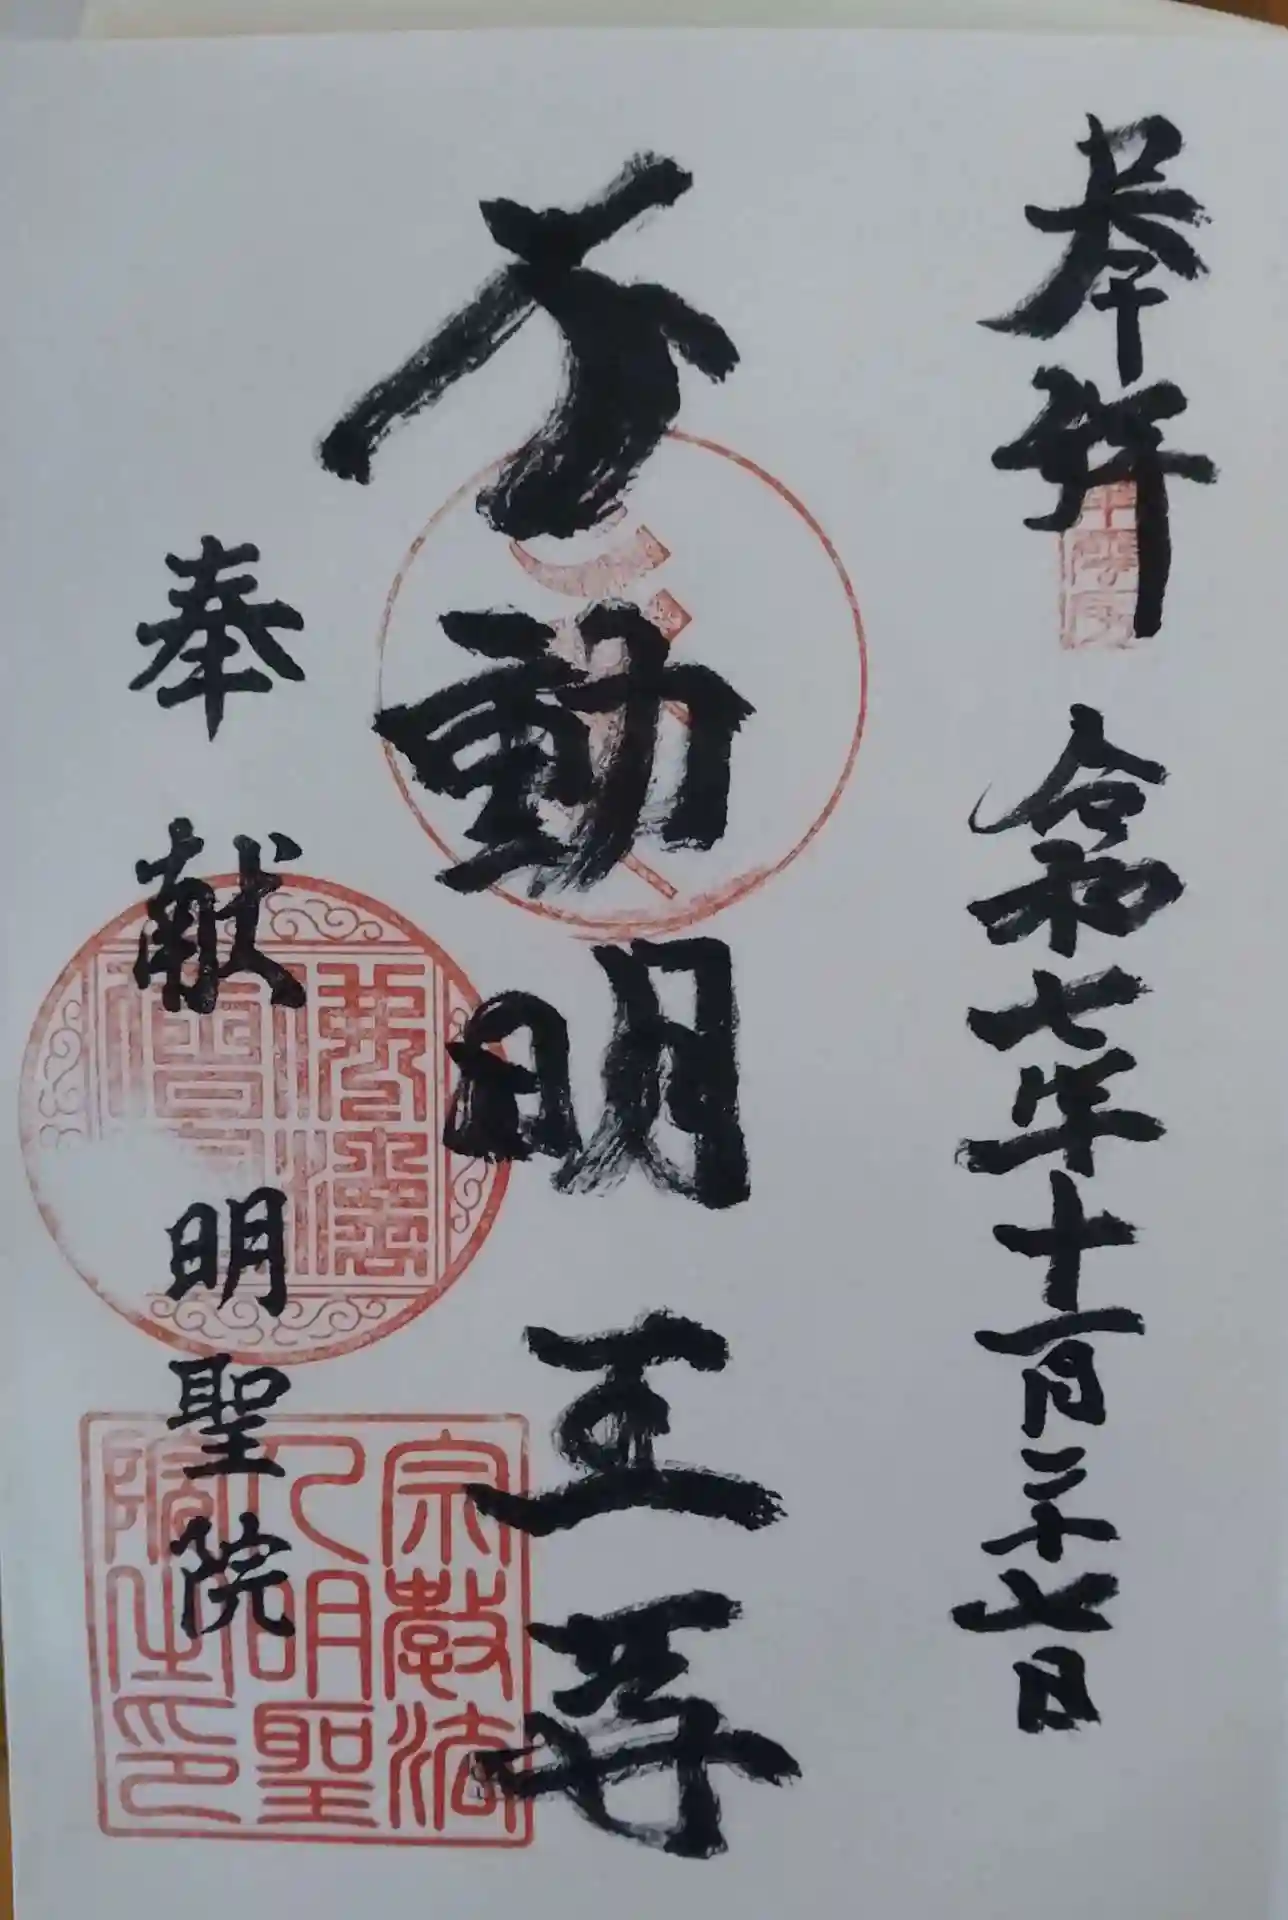 奉拝
令和七年十一月二十七日
不動明王尊
奉献
明聖院
宗教法
人明聖
院之印